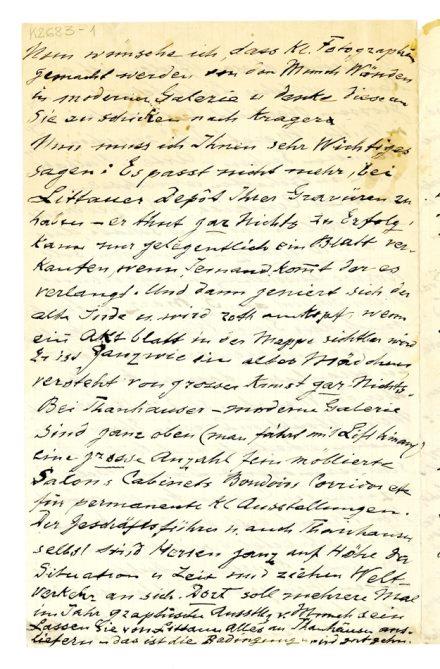 K2683-1
Nun wünsche ich, dass Kl. Fotographien
gemacht werden von den Munch Wänden
in moderner Galerie u denke diese an
Sie zu schicken nach Kragerø
Nun muss ich Ihnen sehr Wichtiges
sagen: Es passt nicht mehr, bei
Littauer Depôt Ihrer Gravüren zu
haben – er thut gar Nichts zu Erfolg,
kann nur gelegentlich ein Blatt ver-
kaufen, wenn Jemand kommt der es
verlangt. Und dann geniert sich der
alte Jude u. wird roth am Kopf, wenn
ein Akt blatt in der Mappe sichtbar wird
Er ist ganz wie ein altes Mädchen
versteht von grosser Kunst gar Nichts.
Bei Thanhauser – moderne Galerie
sind ganz oben (man fährt mit Lift hinauf)
eine grosse Anzahl fein möllierte
Salons Cabinets Boudoirs Corridore etc
für permanente Kl Ausstellungen.
Der Geschäftsführer u. auch Thanhauser
selbst sind Herren ganz auf Höhe der
Situation u Zeit und ziehen Welt-
verkehr an sich. Dort soll mehrere Mal
im Jahr graphische Ausstllg v. Munch sein
Lassen Sie von Littauer Alles an Thanhauser aus-
liefern – das ist die Bedingung und gut gehn.